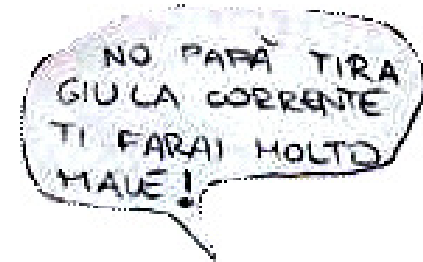 NO PAPÀ TIRA
GIU LA CORRENTE
TI FARAI MOLTO
MALE!